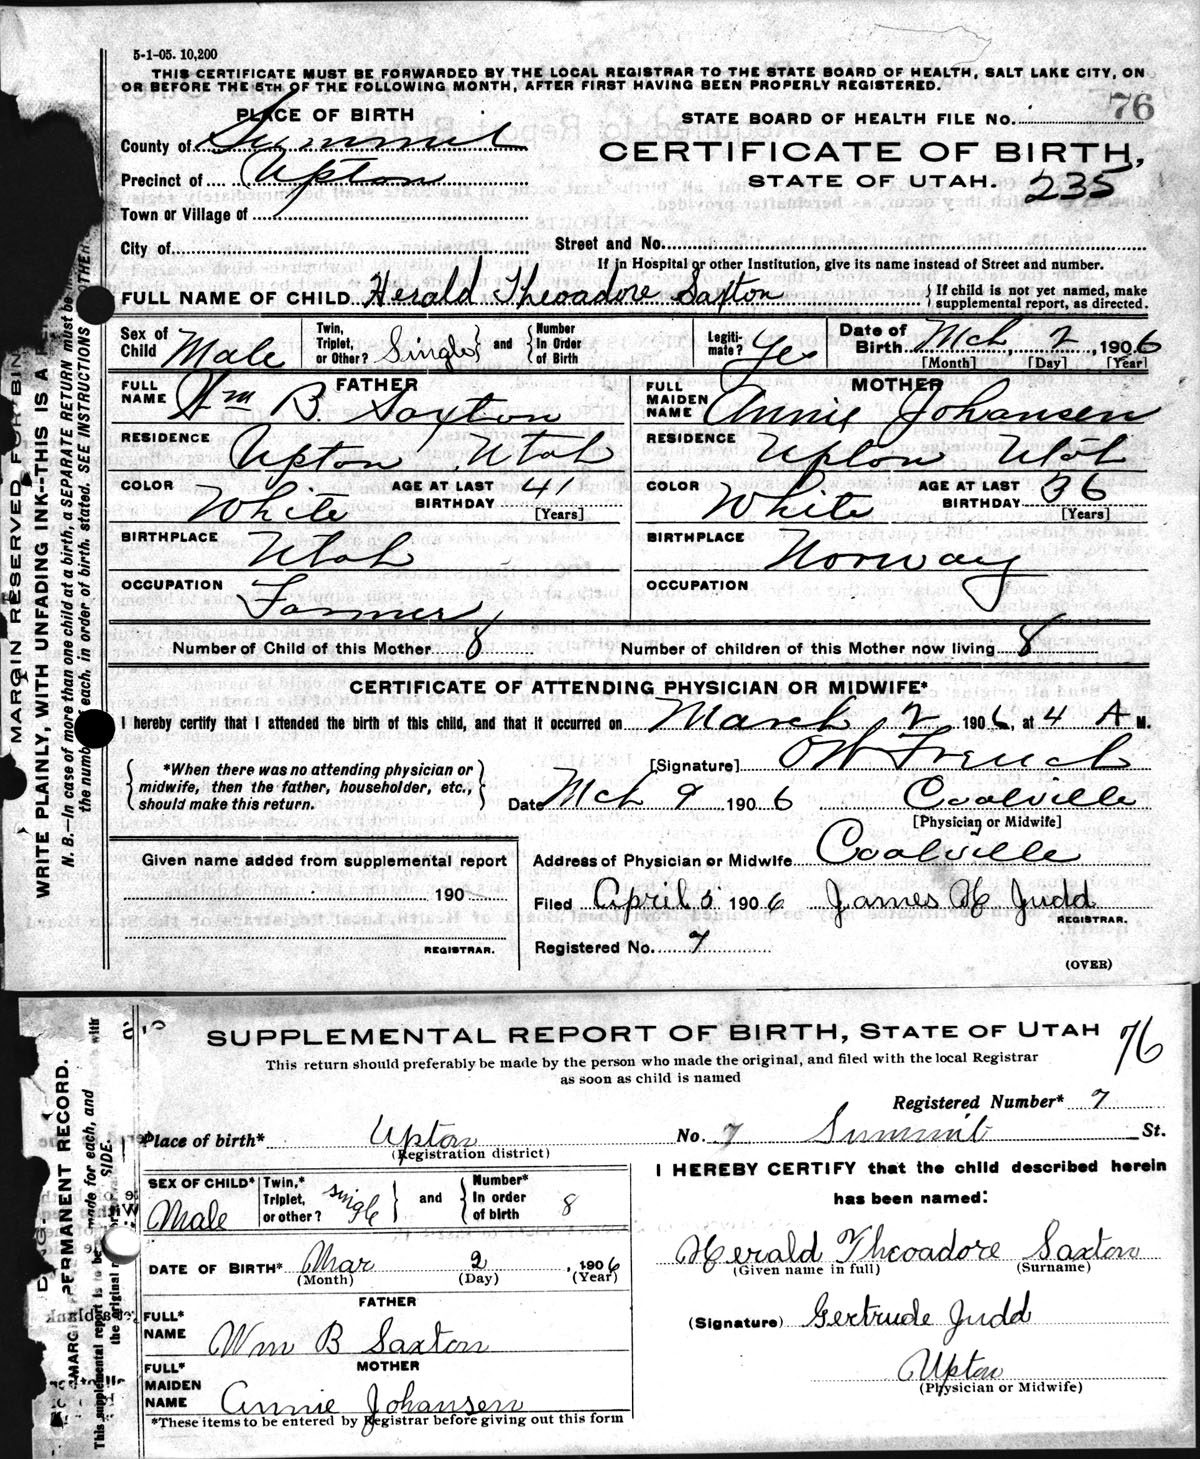 5-1-05. 10,200
THIS CERTIFICATE MUST BE FORWARDED BY THE LOCAL REGISTRAR TO THE STATE BOARD OF HEALTH, SALT LAKE CITY, ON
OR BEFORE THE 5TH OF THE FOLLOWING MONTH, AFTER FIRST HAVING BEEN PROPERLY REGISTERED.
PLACE OF BIRTH
STATE BOARD OF HEALTH FILE No. 76
County of Summit
CERTIFICATE OF BIRTH,
Precinct of Upton
STATE OF UTAH. 235
Town or Village of
City of Street and No.
If in Hospital or other Institution, give its name instead of Street and number.
FULL NAME OF CHILD Herald Theoadore Saxton { If child is not yet named, make supplemental report, as directed.
Sex of Child Male Twin, Triplet, or Other? Single and Number In Order of Birth Legiti-mate? Yes Date of Birth Mch 2, 1906
[Month] [Day] [Year]
FATHER MOTHER
FULL NAME Wm B. Saxton FULL MAIDEN NAME Annie Johansen
RESIDENCE Upton Utah RESIDENCE Upton Utah
COLOR White AGE AT LAST BIRTHDAY 41 [Years] COLOR White AGE AT LAST BIRTHDAY 36 [Years]
BIRTHPLACE Utah BIRTHPLACE Norway
OCCUPATION Farmer OCCUPATION
Number of Child of this Mother 8 Number of children of this Mother now living 8
CERTIFICATE OF ATTENDING PHYSICIAN OR MIDWIFE*
I hereby certify that I attended the birth of this child, and that it occurred on March 2 1906, at 4 A M.
*When there was no attending physician or midwife, then the father, householder, etc., should make this return.
[Signature] OW French
Date Mch 9 1906 Coalville
[Physician or Midwife]
Given name added from supplemental report
Address of Physician or Midwife Coalville
190
Filed April 5 1906 James H Judd
REGISTRAR.
REGISTRAR.
Registered No. 7
(OVER)
MARGIN RESERVED FOR BIN
WRITE PLAINLY, WITH UNFADING INK--THIS IS A
N. B.—In case of more than one child at a birth, a SEPARATE RETURN must be
the number of each, in order of birth, stated. SEE INSTRUCTIONS
SUPPLEMENTAL REPORT OF BIRTH, STATE OF UTAH 76
This return should preferably be made by the person who made the original, and filed with the local Registrar
as soon as child is named
Registered Number* 7
Place of birth* Upton No. 7 Summit St.
(Registration district)
SEX OF CHILD* Male Twin,* Triplet, or other? single and Number* In order of birth 8
I HEREBY CERTIFY that the child described herein
has been named:
DATE OF BIRTH* Mar 2, 1906
(Month) (Day) (Year)
Herald Theoadore Saxton
(Given name in full) (Surname)
FATHER
FULL* NAME Wm B Saxton
(Signature) Gertrude Judd
MOTHER
FULL* MAIDEN NAME Annie Johansen
Upton
(Physician or Midwife)
*These items to be entered by Registrar before giving out this form
PERMANENT RECORD.
This supplemental report is to be made for each, and
SIDE.